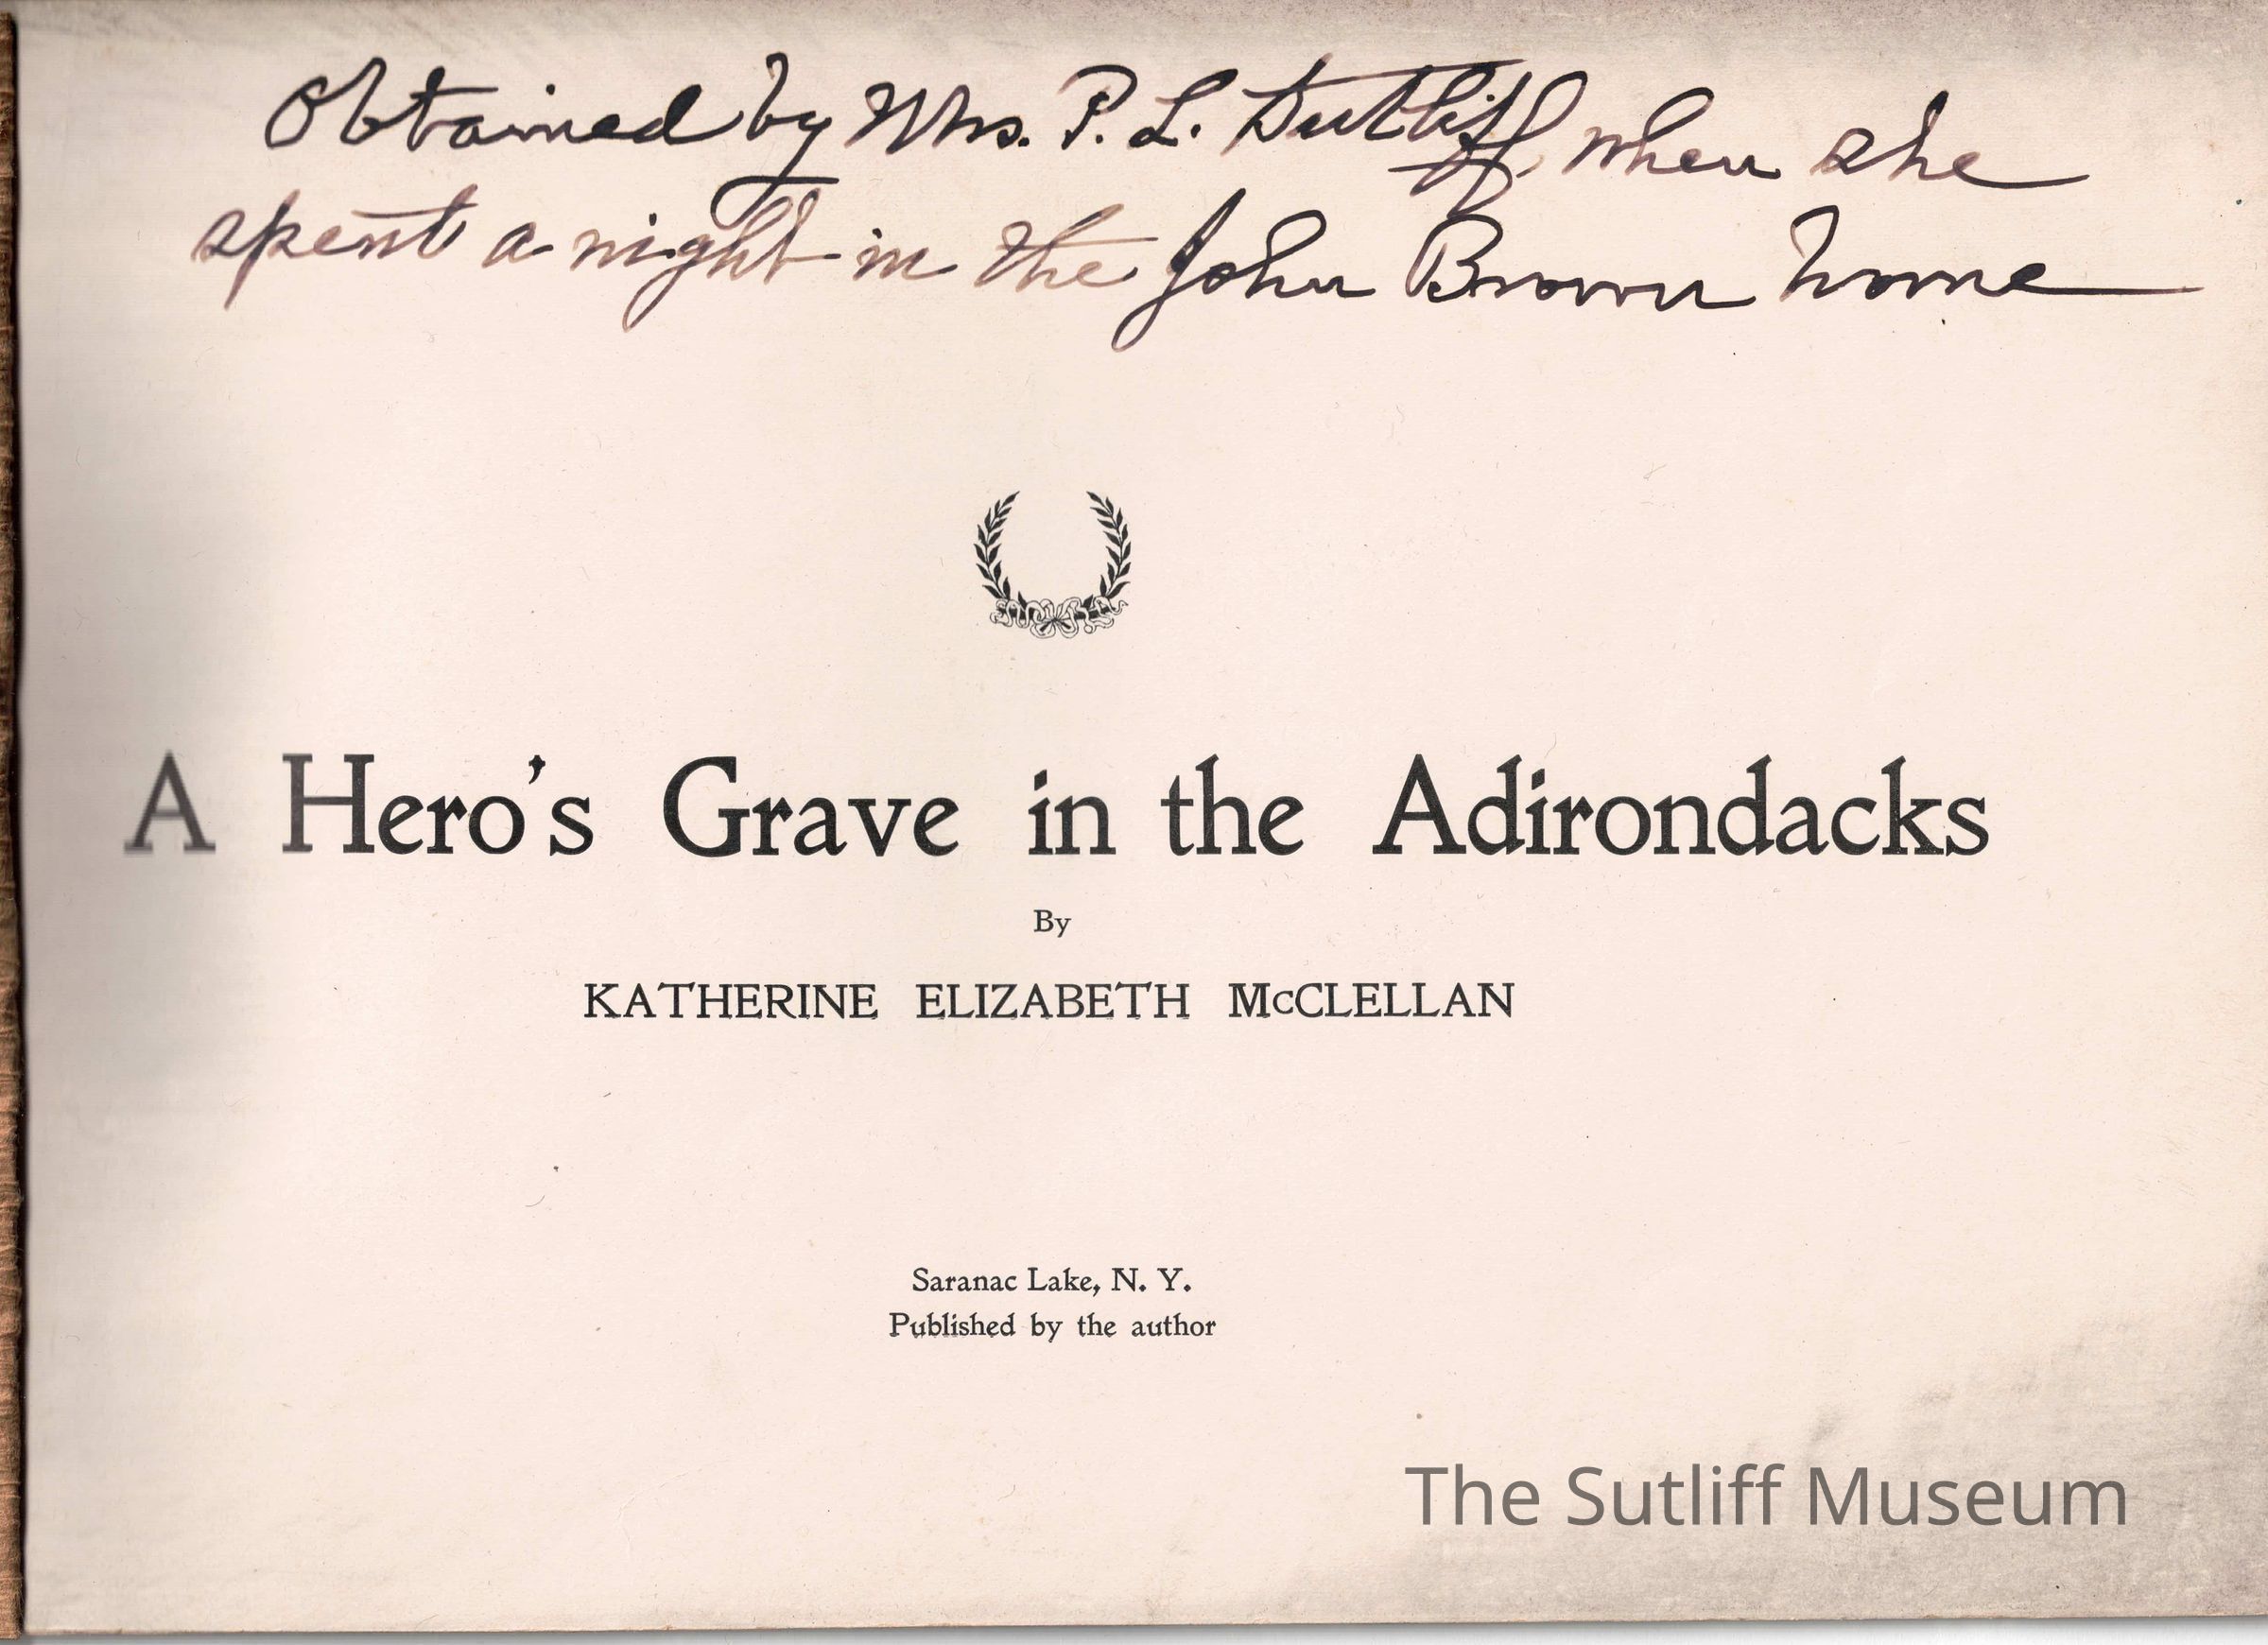 Obtained by Mrs. P. L. Sutliff when she
spent a night in the John Brown home
A Hero's Grave in the Adirondacks
By
KATHERINE ELIZABETH McCLELLAN
Saranac Lake, N. Y.
Published by the author
The Sutliff Museum